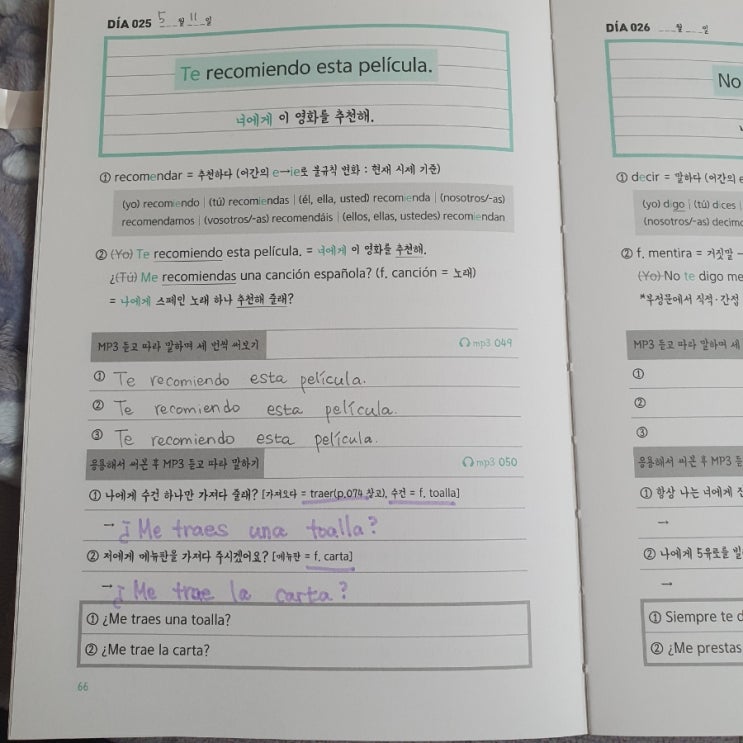 DÍA 025 5 월 11 일
Te recomiendo esta película.
너에게 이 영화를 추천해.
① recomendar = 추천하다 (어간의 e→ie로 불규칙 변화 : 현재 시제 기준)
(yo) recomiendo | (tú) recomiendas | (él, ella, usted) recomienda | (nosotros/-as)
recomendamos | (vosotros/-as) recomendáis | (ellos, ellas, ustedes) recomiendan
② (Yo) Te recomiendo esta película. = 너에게 이 영화를 추천해.
¿(Tú) Me recomiendas una canción española? (f. canción = 노래)
= 나에게 스페인 노래 하나 추천해 줄래?
MP3 듣고 따라 말하며 세 번씩 써보기 mp3 049
① Te recomiendo esta película.
② Te recomiendo esta película.
③ Te recomiendo esta película.
응용해서 써본 후 MP3 듣고 따라 말하기 mp3 050
① 나에게 수건 하나만 가져다 줄래? [가져오다 = traer(p.074 참고), 수건 = f. toalla]
→ ¿Me traes una toalla?
② 저에게 메뉴판을 가져다 주시겠어요? [메뉴판 = f. carta]
→ ¿Me trae la carta?
① ¿Me traes una toalla?
② ¿Me trae la carta?
66
DÍA 026 월 일
No
① decir = 말하다 (어간의 e
(yo) digo | (tú) dices |
(nosotros/-as) decimo
② f. mentira = 거짓말
(Yo) No te digo me
*부정문에서 직적·간정
MP3 듣고 따라 말하며 세
①
②
③
응용해서 써본 후 MP3 듣
① 항상 나는 너에게 진
→
② 나에게 5유로를 빌
→
① Siempre te d
② ¿Me prestas